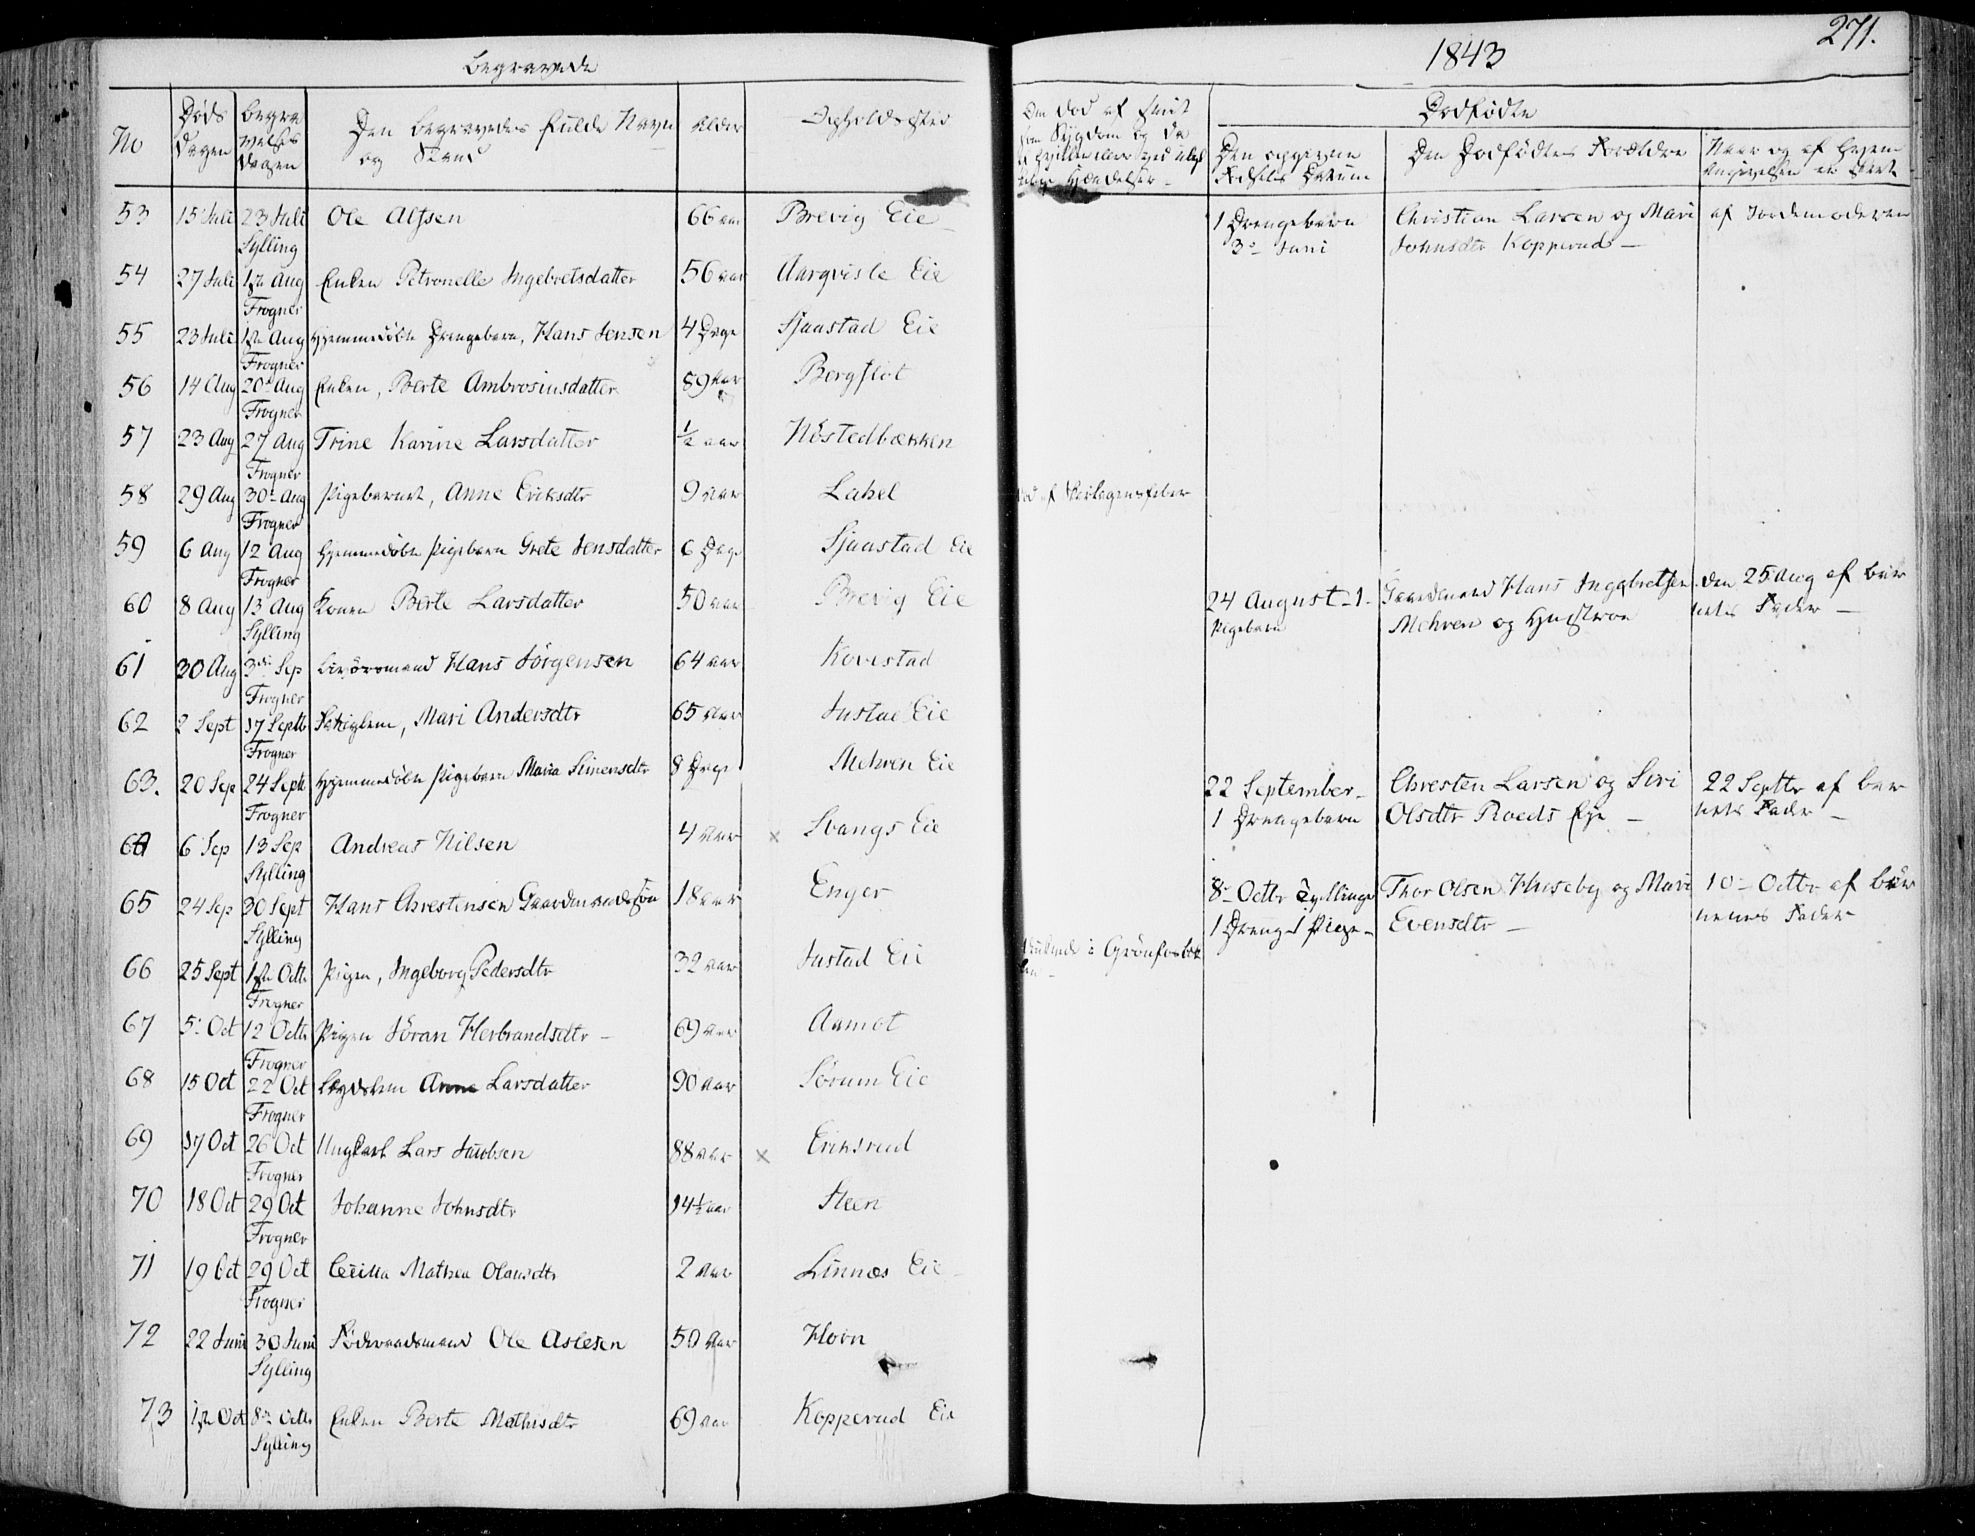 Begravede
No
Døds Dagen
Begravelses Dagen
Den begravedes fulde Navn og Stand
Alder
Opholdssted
53 15 Juli 23 Juli Ole Alfsen 66 aar Brevig Eie
Sylling
54 27 Juli 1ste Aug Enken Petronelle Ingebretsdatter 56 aar Aarqvisle Eie
Frogner
55 23 Juli 1ste Aug Hjemmedøbte Drengebarn, Hans Jensen 4 Dage Sjaastad Eie
Frogner
56 14 Aug 20de Aug Enken, Berte Ambrosiusdatter 89 Aar Bergflot
Frogner
57 23 Aug 27 Aug Trine Karine Larsdatter ½ aar Høstedbækken
Frogner
58 29 Aug 30- Aug Pigebarnet, Anne Eriksdtr 9 Aar Lahel
Frogner
59 6 Aug 12 Aug Hjemmedøbte Pigebarn Grete Jensdatter 6 Dage Sjaastad Eie
Frogner
60 8 Aug 13 Aug Konen Berte Larsdatter 50 aar Brevig Eie
Sylling
61 30 Aug 3die Sep Hans Jörgensen 64 aar Kovestad
Frogner
62 2 Sept 17 Septb Mari Andersdtr 65 Aar Justad Eie
Frogner
63. 20 Sep 24 Septb Hjemmedøbte Pigebarn Maria Simensdtr 8 Dage Mehren Eie
Frogner
64 6 Sep 13 Sep Andreas Nilsen 4 Aar x Svangs Eie
Sylling
65 24 Sep 30 Sept Hans Chrestensen Gaardmands Søn 18 aar Enger
Sylling
66 25 Sept 1ste Octb Pigen, Ingeborg Pedersdtr 32 aar Justad Eie
Frogner
67 5- Oct 12 Octb Pigen Jöran Herbrandsdtr - 69 Aar Aamot
Frogner
68 15 Oct 22 Oct Lægdslem Anne Larsdatter 90 Aar Sörum Eie
Frogner
69 17 Oct 26 Oct Ungkarl Lars Jacobsen 88 aar x Eriksrud
Frogner
70 18 Oct 29 Oct Johanne Johnsdtr 14½ aar Steen
Frogner
71 19 Oct 29 Oct Cecilia Mathea Olausdtr 2 Aar Linnæs Eie
Frogner
72 22 Juni 30 Juni Föderaadsmand Ole Aslesen 50 Aar Horn
Sylling
73 1ste Oct 8de Octb Enken Berte Mathisdtr 69 aar Kopperud Eie
Sylling
1843
271.
Dödfødte
Den opgivne Fødsels Datum
Den Dödfødtes Forældre
Naar og af hvem Angivelsen er skeet
1 Drengebarn
3- Juni
Christian Larsen og Mari
Johnsdtr Kopperud -
af Jordemoderen
24 August - 1.
Pigebarn
Gaardmand Hans Ingebretsen
Mehren og Hustroe
den 25 Aug af Bar-
nets Fader -
22 September -
1 Drengebarn
Chresten Larsen og Siri
Olsdtr Roeds Eje -
22 Septbr af Bar-
nets Fader -
8- Octbr Tvillinge
1 Dreng 1 Pige -
Thor Olsen Huseby og Mari
Evensdtr -
10- Octbr af Bør-
nenes Fader